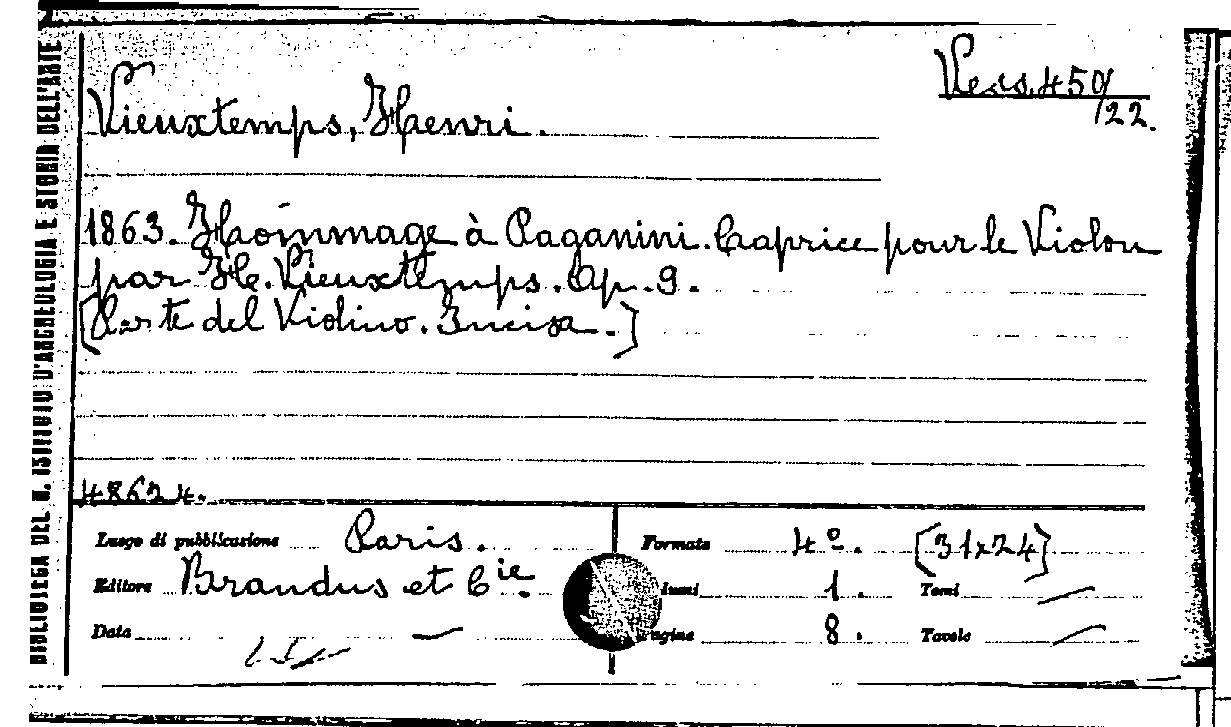 BIBLIOTECA DEL R. ISTITUTO D'ARCHEOLOGIA E STORIA DELL'ARTE
Vess. 450/22.
Vieuxtemps, Henri.
1863. Hommage à Paganini. Caprice pour le Violon
par H. Vieuxtemps. Op. 9.
[Parte del Violino. Incisa.]
48624.
Luogo di pubblicazione Paris.
Formato 4º. [31x24]
Editore Brandus et Cie.
lumi 1. Tomi —
Data —
agine 8. Tavole —